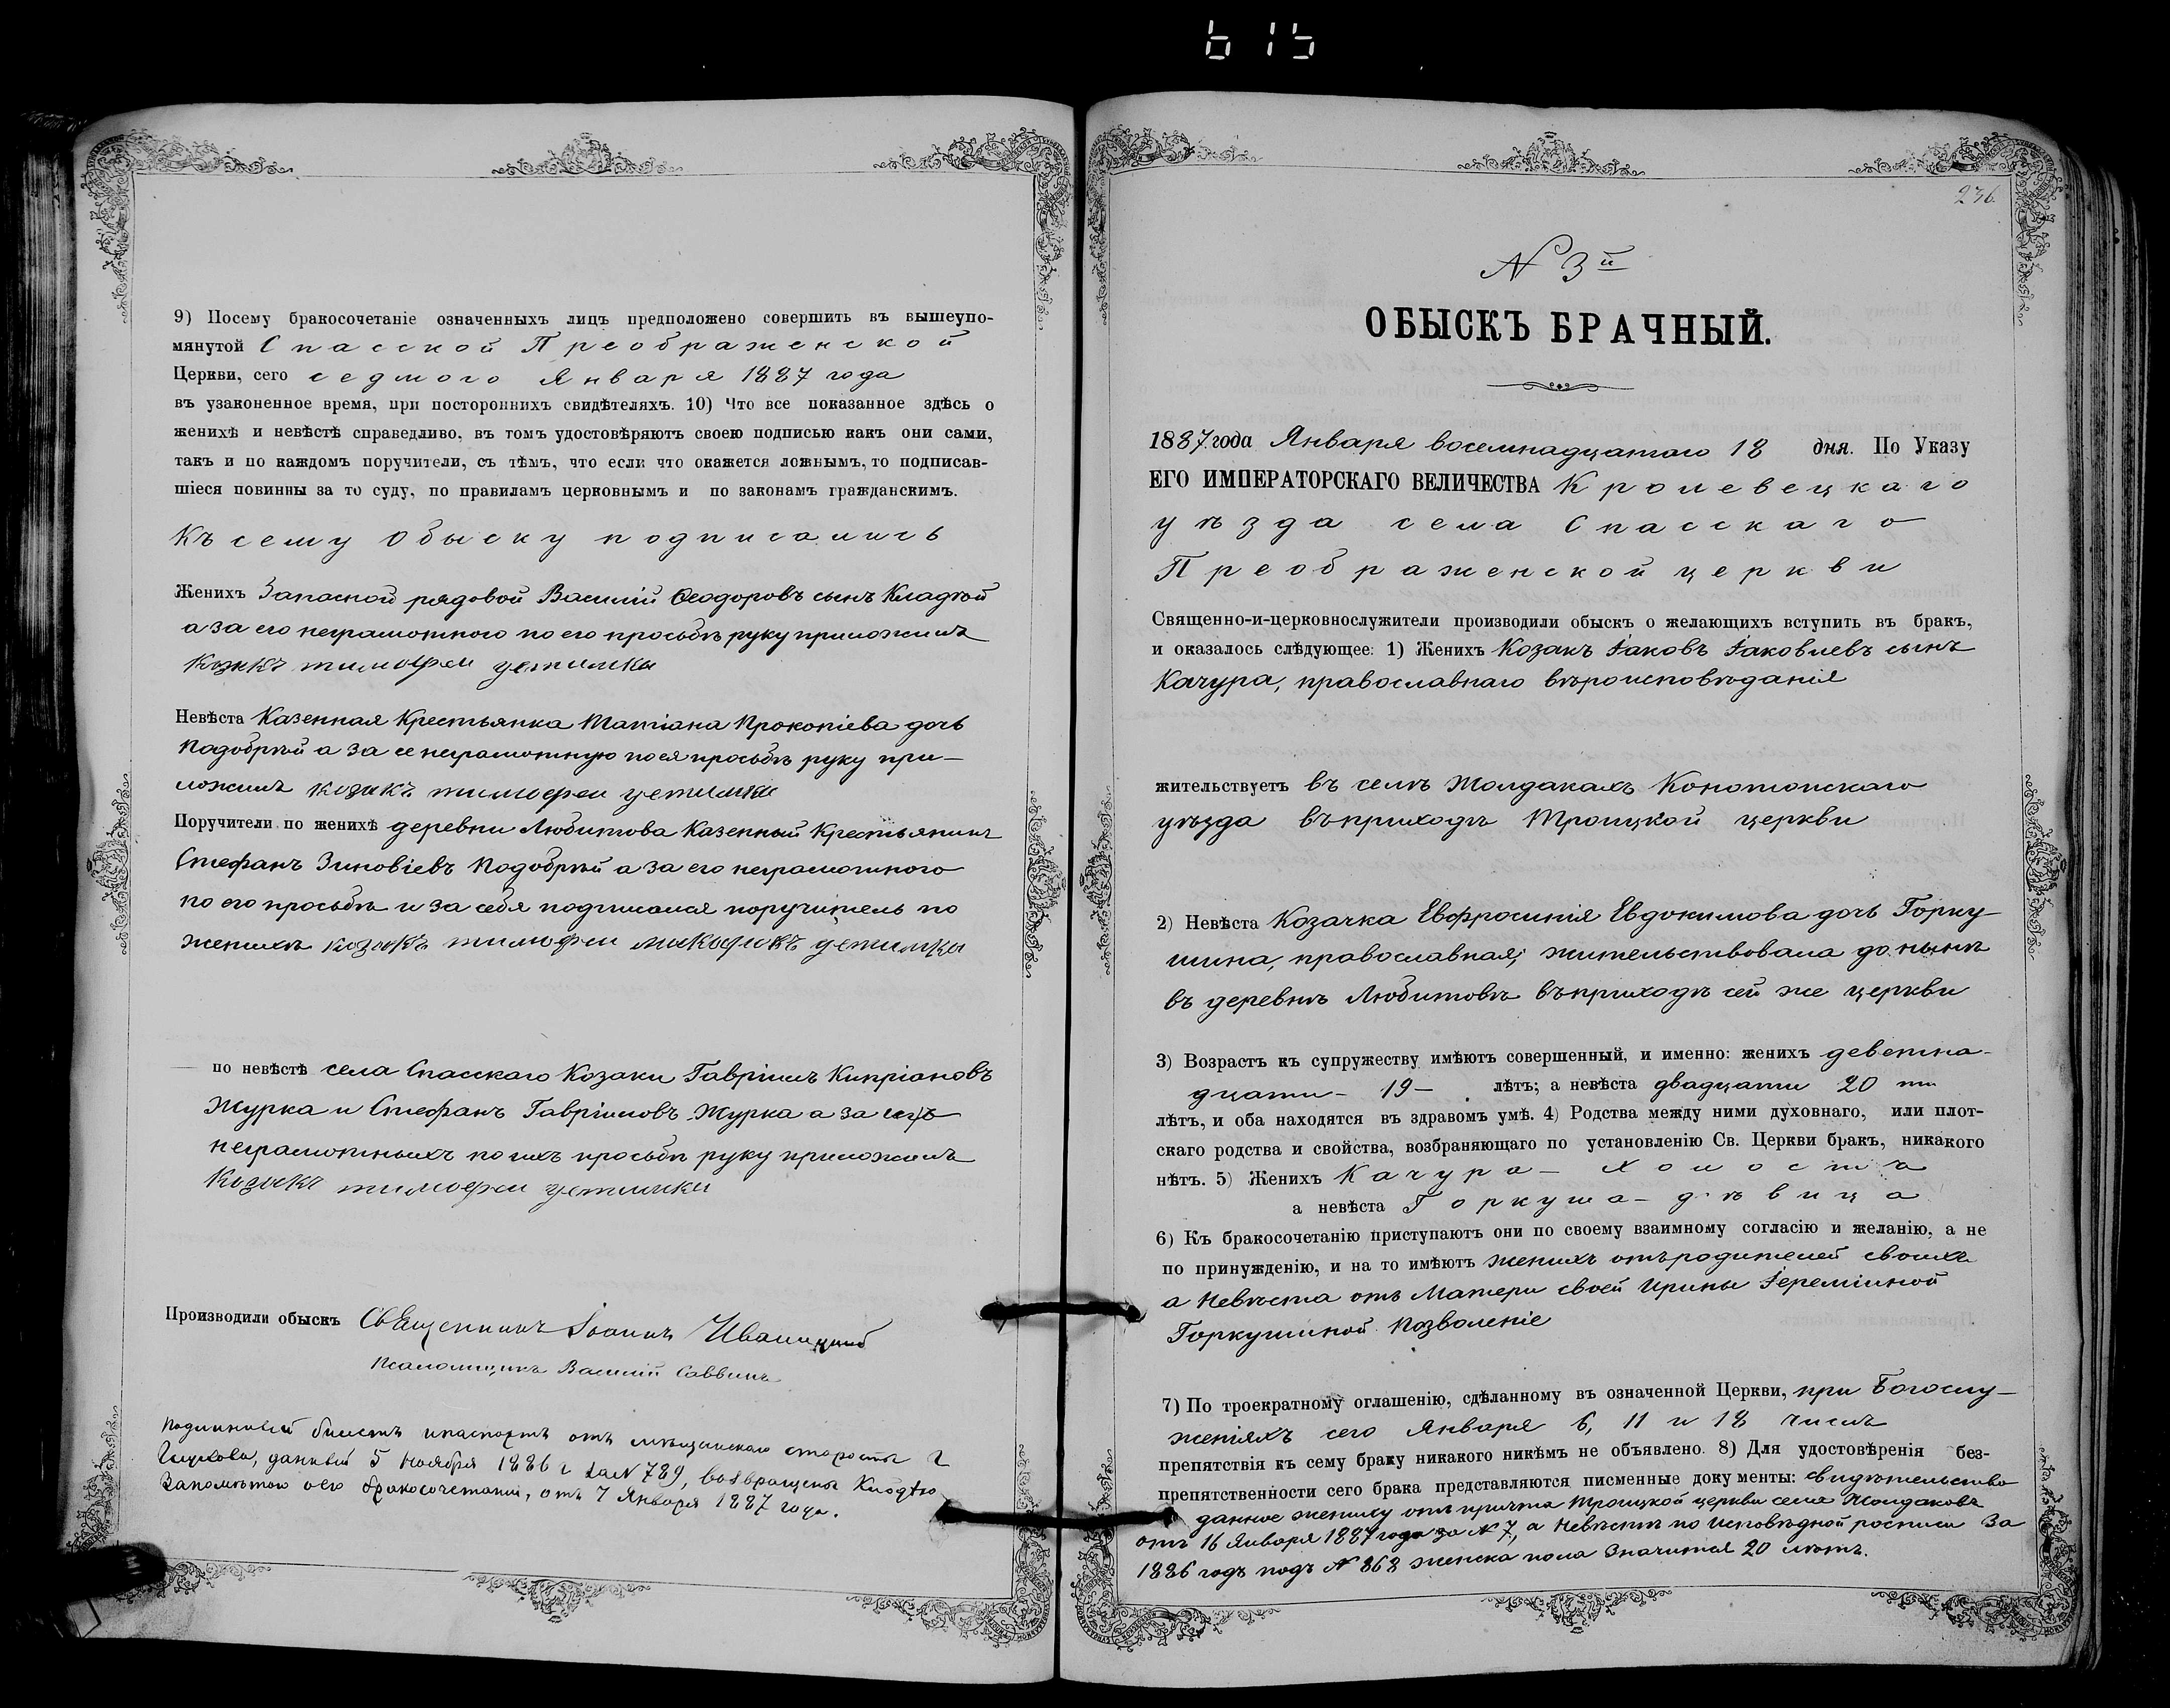 615
9) Посему бракосочетаніе означенныхъ лицъ предположено совершить въ вышеупо-
мянутой Спасской Преображенской
Церкви, сего седмого Января 1887 года
въ узаконенное время, при постороннихъ свидѣтеляхъ. 10) Что все показанное здѣсь о
женихѣ и невѣстѣ справедливо, въ томъ удостовѣряютъ своею подписью какъ они сами,
такъ и по каждомъ поручители, съ тѣмъ, что если что окажется ложнымъ, то подписав-
шіеся повинны за то суду, по правиламъ церковнымъ и по законамъ гражданскимъ.
Къ сему обыску подписались
Женихъ Запасной рядовой Василій Ѳеодоровъ сынъ Кладѣой
а за его неграмотного по его просьбѣ руку приложилъ
Козакъ тимофеи
Невѣста Казенная Крестьянка Татіана Прокопіева дочь
Подобрѣй а за ее неграмотную по ея просьбѣ руку при-
ложилъ козакъ тимофеи
Поручители по женихѣ деревни Любитова Казенный Крестьянинъ
Стефанъ Зиновіевъ Подобрѣй а за его неграмотного
по его просьбѣ и за себя подписался поручитель по
женихѣ козакъ тимофеи
по невѣстѣ села Спасскаго Козаки Гавріилъ Кипріановъ
Журка и Стефанъ Гавріиловъ Журка а за ихъ
неграмотныхъ по ихъ просьбѣ руку приложилъ
Козакъ тимофеи
Производили обыскъ Священникъ Іоаннъ
Псаломщикъ Василій Саввинъ
Подлинный билетъ и паспортъ отъ мѣщанскаго старосты г
Глухова, данный 5 Ноября 1886 г за N 789, возвращенъ
о его бракосочетаніи, отъ 7 Января 1887 года.
236.
N 3й
ОБЫСКЪ БРАЧНЫЙ.
1887 года Января восемнадцатаго 18 дня. По Указу
ЕГО ИМПЕРАТОРСКАГО ВЕЛИЧЕСТВА Кролевецкаго
уѣзда села Спасскаго
Преображенской церкви
Священно-и-церковнослужители производили обыскъ о желающихъ вступить въ бракъ,
и оказалось слѣдующее: 1) Женихъ Козакъ Іаковъ Іаковлевъ сынъ
Качура, православнаго вѣроисповѣданія
жительствуетъ въ селѣ Жолдакахъ Конотопскаго
уѣзда въ приходѣ Троицкой церкви
2) Невѣста Козачка Евфросинія Евдокимова дочь Горку-
шина, православная; жительствовала до нынѣ
въ деревнѣ Любитовѣ въ приходѣ сей же церкви
3) Возрастъ къ супружеству имѣютъ совершенный, и именно: женихъ деветна-
дцати - 19 - лѣтъ; а невѣста двадцати 20 ти
лѣтъ, и оба находятся въ здравомъ умѣ. 4) Родства между ними духовнаго, или плот-
скаго родства и свойства, возбраняющаго по установленію Св. Церкви бракъ, никакого
нѣтъ. 5) Женихъ Качура - холостъ
а невѣста Горкуша - дѣвица
6) Къ бракосочетанію приступаютъ они по своему взаимному согласію и желанію, а не
по принужденію, и на то имѣютъ женихъ отъ родителей своихъ
а Невѣста отъ Матери своей Ирины Іереміиной
Горкушиной позволеніе
7) По троекратному оглашенію, сдѣланному въ означенной Церкви, при Богослу-
женіяхъ сего Января 6, 11 и 18 числъ
препятствія къ сему браку никакого никѣмъ не объявлено. 8) Для удостовѣренія без-
препятственности сего брака представляются писменные документы: свидѣтельство
данное жениху отъ причта Троицкой церкви села Жолдаковъ
отъ 16 Января 1887 года за N 7, а Невѣстѣ по Исповѣдной росписи За
1886 годъ подъ N 868 женска пола Значится 20 лѣтъ.